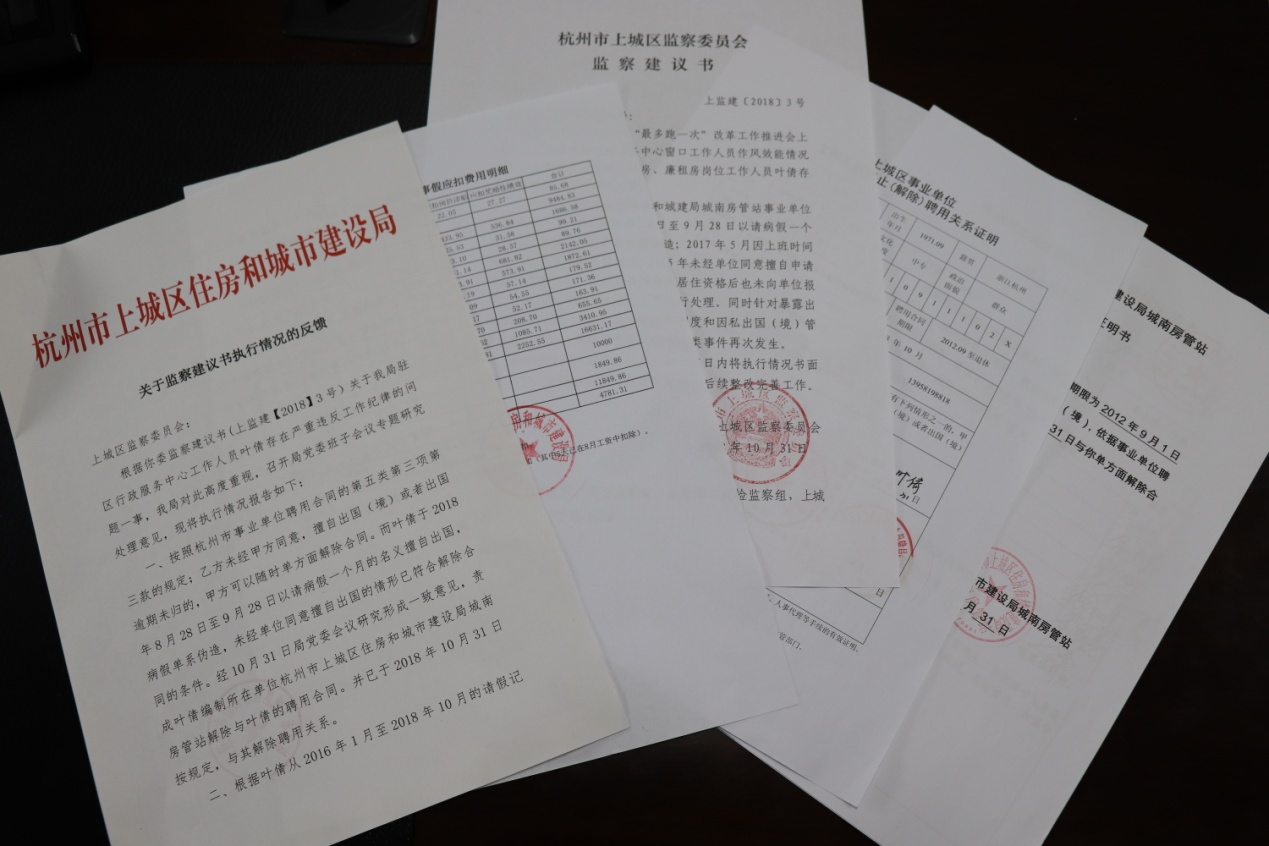 杭州市上城区住房和城市建设局
关于监察建议书执行情况的反馈
上城区监察委员会：
根据你委监察建议书(上监建【2018】3号）关于我局驻
区行政服务中心工作人员叶倩存在严重违反工作纪律的问
题一事，我局对此高度重视，召开局党委班子会议专题研究
处理意见，现将执行情况报告如下：
一、按照杭州市事业单位聘用合同的第五类第三项第
三款的规定；乙方未经甲方同意，擅自出国（境）或者出国
逾期未归的，甲方可以随时单方面解除合同。而叶倩于2018
年8月28日至9月28日以请病假一个月的名义擅自出国，
病假单系伪造，未经单位同意擅自出国的情形已符合解除合
同的条件。经10月31日局党委会议研究形成一致意见，责
成叶倩编制所在单位杭州市上城区住房和城市建设局城南
房管站解除与叶倩的聘用合同。并已于2018年10月31日
按规定，与其解除聘用关系。
二、根据叶倩从2016年1月至2018年10月的请假记
事假应扣费用明细
合计
22.05 27.27 85.68
9484.83
336.84 1686.58
31.58 99.21
28.57 89.76
681.82 2142.05
573.91 1872.61
57.14 179.52
54.55 171.36
52.17 163.91
208.70 655.65
1085.71 3410.95
2252.55 16631.17
10000
1849.86
11849.86
4781.31
已在8月工资中扣除）。
杭州市上城区监察委员会
监察建议书
上监建〔2018〕3号
“最多跑一次”改革工作推进会上
务中心窗口工作人员作风效能情况
房、廉租房岗位工作人员叶倩存
和城建局城南房管站事业单位
日至9月28日以请病假一个
造；2017年5月因上班时间
5年未经单位同意擅自申请
居住资格后也未向单位报
行处理，同时针对暴露出
度和因私出国（境）管
类事件再次发生。
日内将执行情况书面
后续整改完善工作。
上城区监察委员会
10月31日
检监察组，上城
上城区事业单位
止(解除)聘用关系证明
出生年月 1971.09 籍贯 浙江杭州
中专 政治面貌 群众
1 0 9 1 1 1 0 2 X
聘用合同期限 2012.09至退休
10月
13958198818
有下列情形之一的，甲
(境)或者出国(境)
叶倩
日
人事代理等手续的有效证明。
管部门。
建设局城南房管站
证明书
期限为2012年9月1日
（境），依据事业单位聘
31日与你单方面解除合
市建设局城南房管站
月31日